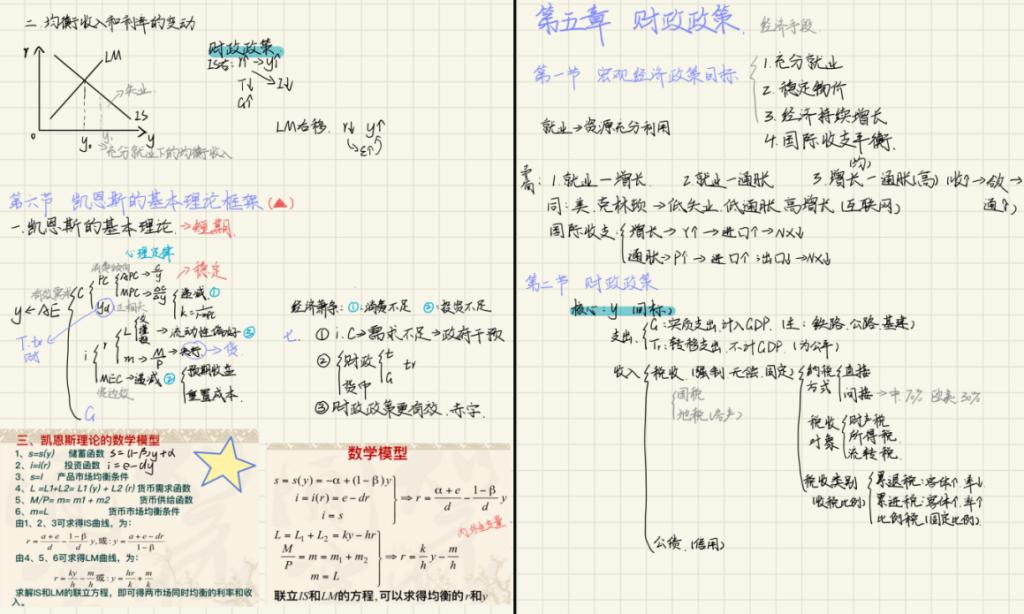 二.均衡收入和利率的变动
r
LM
IS
0
y₀
y₁
y
失业
充分就业下的均衡收入
财政政策
IS右: r↑→y↑
T↓ → I↓
G↑
LM右移. r↓ y↑
第六节 凯恩斯的基本理论框架(▲)
一.凯恩斯的基本理论.→短期
心理定律
→稳定
有效需求
y←AE
C
APC→
MPC→
递减①
Yd
正相关
i
r
L
流动性偏好③
m→M/P→央行→货
MEC→递减②
预期收益
重置成本.
G
T.tr
财
经济萧条: ①:消费不足 ②:投资不足
七.
① i.C→需求不足→政府干预
② 财政 t G tr
货币
③财政政策更有效.赤字.
三、凯恩斯理论的数学模型
1、s=s(y) 储蓄函数 s=(1-β)y+α
2、i=i(r) 投资函数 i=e-dy
3、s=I 产品市场均衡条件
4、L=L1+L2= L1 (y) + L2 (r) 货币需求函数
5、M/P= m= m1 + m2 货币供给函数
6、m=L 货币市场均衡条件
由1、2、3可求得IS曲线，为：
r = (α+e)/d − (1−β)/d y, 或: y = (α+e−dr)/(1−β)
由4、5、6可求得LM曲线，为：
r = ky/h − m/h 或: y = hr/k + m/k
求解IS和LM的联立方程，即可得两市场同时均衡的利率和收入。
数学模型
s = s(y) = −α + (1−β)y
i = i(r) = e − dr
i = s
⇒ r = (α+e)/d − (1−β)/d y
L = L₁ + L₂ = ky − hr
M/P = m = m₁ + m₂
m = L
⇒ r = k/h y − m/h
内外生变量
联立IS和LM的方程,可以求得均衡的r和y
第五章 财政政策. 经济手段
第一节 宏观经济政策目标
1.充分就业
2.稳定物价
3.经济持续增长
4.国际收支平衡.
就业→资源充分利用
需: 1.就业一增长. 2.就业一通胀 3.增长一通胀(高)
同: 美.克林顿→低失业.低通胀.高增长(互联网)
国际收支: 增长→Y↑→进口↑→NX↓
通胀→P↑→进口↑:出口↓→NX↓
第二节 财政政策
核心: y (目标)
支出:
G:实质支出.计入GDP. (主: 铁路.公路.基建)
Tr:转移支出.不计GDP. (为公平)
收入
税收 (强制.无偿.固定)
国税
地税
纳税方式
直接
间接→中70% 欧美30%
税收对象
财产税
所得税
流转税.
税收类别
收税比例
累退税:客体↑.率↓
累进税:客体↑.率↑
比例税(固定比例).
公债.(信用)